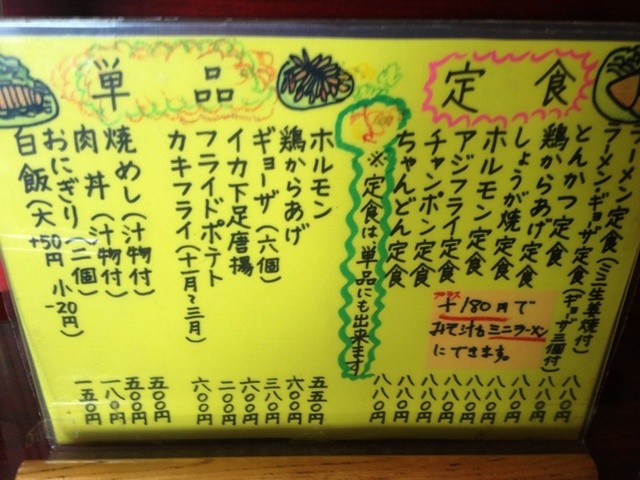 定食
ラーメン定食(ミニ生姜焼付) 八八〇円
ラーメン・ギョーザ定食(ギョーザ三個付) 八八〇円
とんかつ定食 八八〇円
鶏からあげ定食 八八〇円
しょうが焼定食 八八〇円
ホルモン定食 八八〇円
アジフライ定食 八八〇円
チャンポン定食 八八〇円
ちゃんどん定食 八八〇円
プラス
+180円で
みそ汁をミニラーメン
にできます。
※定食は単品にも出来ます
単品
ホルモン 五五〇円
鶏からあげ 六〇〇円
ギョーザ(六個) 三八〇円
イカ下足唐揚 六〇〇円
フライドポテト 二〇〇円
カキフライ(十一月~三月) 六〇〇円
焼めし(汁物付) 五〇〇円
肉丼(汁物付) 五〇〇円
おにぎり(二個) 一八〇円
白飯(大+50円 小-20円) 一五〇円